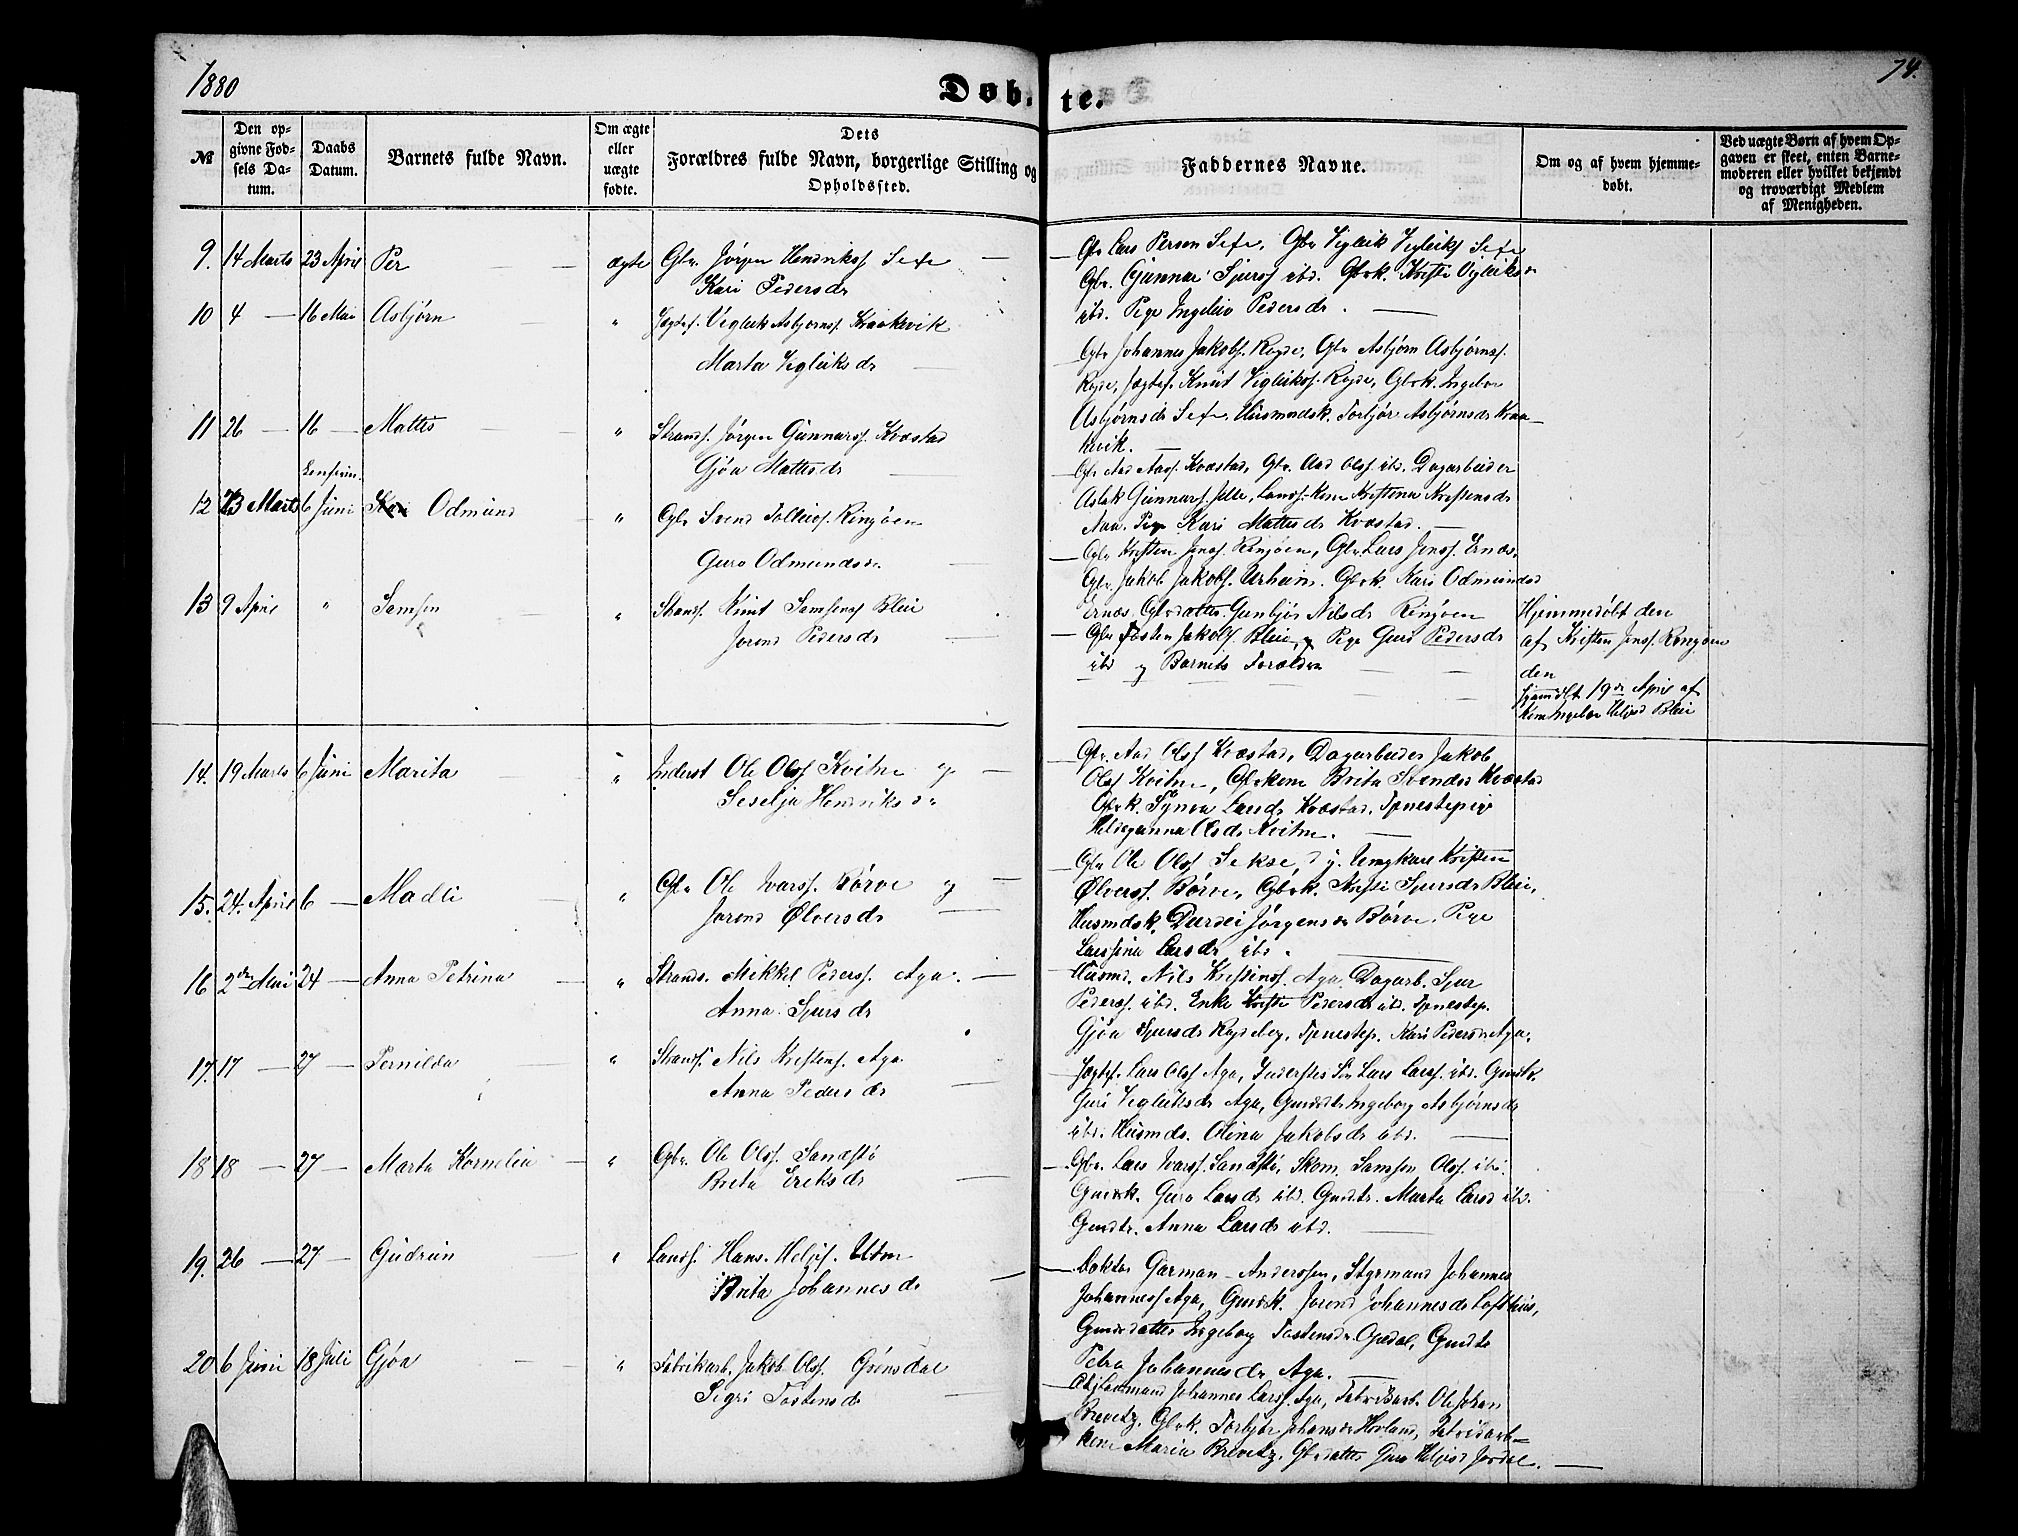 1880
Døbte.
74.
№
Den opgivne Fødsels Datum.
Daabs Datum.
Barnets fulde Navn.
Om ægte eller uægte fødte.
Dets Forældres fulde Navn, borgerlige Stilling og Opholdssted.
Faddernes Navne.
Om og af hvem hjemmedøbt.
Ved uægte Børn af hvem Opgaven er skeet, enten Barnemoderen eller hvilket bekjendt og troværdigt Medlem af Menigheden.
9. 14 Marts 23 April Per ægte Gbr. Jørgen Hendrikss Sexe
Kari Pedersdr
Gbr Lars Person Sexe, Gbr Vigleik Vigleiks Sexe
Gbr. Gunnar Sjurss ibd. Gbrk. Kristi Vigleiksdr
ibd. Pige Ingeleiv Pedersdr.
10 4 — 16 Mai Asbjørn " Jægtef. Vigleik Asbjørnss. Kraakevik
Marta Vigleiksdr
Gbr Johannes Jakobs. Røyde, Gbr Asbjørn Asbjørnss.
Røyde, Jægtef. Knut Vigleikss. Røyde, Gbrk. Ingebor
Asbjørnsdr Sexe, Husmndsk. Torbjør Asbjørnsdr Kraa-
kevik.
11 26 — 16 — Mattis " Strands. Jørgen Gunnarss. Kvæstad
Gjøa Mattisdr
Gbr Aad Aass. Kvæstad, Gbr. Aad Olss ibd. Dagarbeider
Aslak Gunnars. Jelle, Landh. Kone Kristina Kristensdr
Aaa. Pige Kari Mattisdr Kvæstad.
12 23 Marts 6 Juni Odmund " Gbr Svend Tolleivs. Ringøen
Guro Odmundsdr
Gbr Kristen Jonss. Ringøen, Gbr Lars Jonss. Ernæs,
Gbr. Jakob Jakobs. Urheim. Gbrk. Kari Odmundsdr
Ernæs. Gbrdatter Gunbjør Nilsdr Ringøen
Hjemmedøbt den
af Kristen Jonss. Ringøen
13 9 April " Samson " Strands. Knut Samsonss Bleie
Jorend Pedersdr
Gbr Tosten Jakobs. Bleie, Pige Guro Pedersdr
ibd og Barnets Forældre
den
hjemdbt 19de April af
Kone Ingebor Heljesd Bleie
14. 19 Marts 6 Juni Marita " Inderst Ole Olss Kvitne og
Seselja Hendriksdr
Gbr. Aad Olss Kvæstad, Dagarbeider Jakob
Olss Kvitne, Gbrkone Brita Svendsdr Kvæstad
Gbrk. Synva Larsdr Kvæstad. Tjenestepige
Hildeganna Olsdr Kvitne.
15. 24. April 6 — Madli " Gbr Ole Ivarss. Børve og
Jorend Ølversdr
Gbr Ole Olss Sekse, d y. Ungkarl Kristen
Ølverss. Børve, Gbrk. Kristi Sjursdr Bleie,
Husmdsk. Durdei Jørgensdr Børve. Pige
Larssina Larsdr ibd.
16 2den Mai 24 — Anna Petrina " Strands. Mikkel Pederss. Aga.
Anna Sjursdr
Husmd. Nils Kristenss. Aga, Dagarb. Sjur
Pederss. ibd. Enke Kristi Pedersdr ibd. Tjenestep.
Gjøa Sjursdr Røydeberg, Tjenestep. Kari Pedersdr Aga.
17. 17 — 27 — Pernilda " Strands. Nils Kristens. Aga.
Anna Pedersdr
Jægtef. Lars Olss Aga, Inderstes Søn Lars Larss. ibd. Gmdk.
Guri Vigleiksdr Aga, Gmddtr Ingeborg Asbjørnsdr
ibd. Husmds. Olina Jakobsdr ibd.
18 18 — 27 — Marta Kornelia " Gbr. Ole Olss. Sandstø
Brita Eriksdr
Gbr. Lars Ivarss. Sandstø, Skom. Samson Olss. ibd.
Gmdsk. Guro Larsdr ibd. Gmdtr. Marta Larsd ibd.
Gmdtr. Anna Larsdr ibd.
19. 26 — 27 — Gudrun " Landh. Hans. Heljes. Utne
Brita Johannesdr
Doktor Garman-Anderssen, Styrmand Johannes
Johanness Aga, Gmdsk. Jorend Johannesdr Lofthus,
Gmdsdatter Ingeborg Tostensdr Opedal, Gmdtr
Petra Johannesdr Aga.
20 6 Juni 18 Juli Gjøa " Fabrikarb. Jakob Olss. Grønsdal
Sigri Tostensdr
Johannes Larss. Aga, Fabrikarb. Ole Johan
Brevetz, Gbrk. Torbjør Johansdr Hovland, Fabrikarb-
kone Maria Brevetz. Gbrdatter Guro Heljesd Jordal.